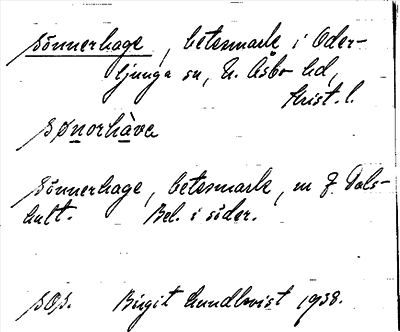 Sönnerhage, betesmark i Oder-
ljunga sn, N. Åsbo hd,
Krist. l.
sønorhàva
Sönnerhage, betesmark, m f. Dals-
hult. Bel. i söder.
sqs. Birgit Lundkvist 1938.